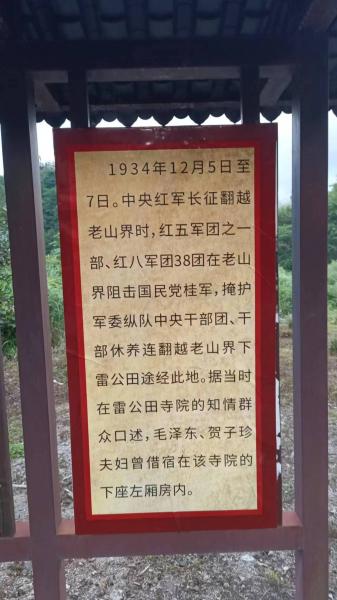 1934年12月5日至
7日。中央红军长征翻越
老山界时,红五军团之一
部、红八军团38团在老山
界阻击国民党桂军,掩护
军委纵队中央干部团、干
部休养连翻越老山界下
雷公田途经此地。据当时
在雷公田寺院的知情群
众口述,毛泽东、贺子珍
夫妇曾借宿在该寺院的
下座左厢房内。